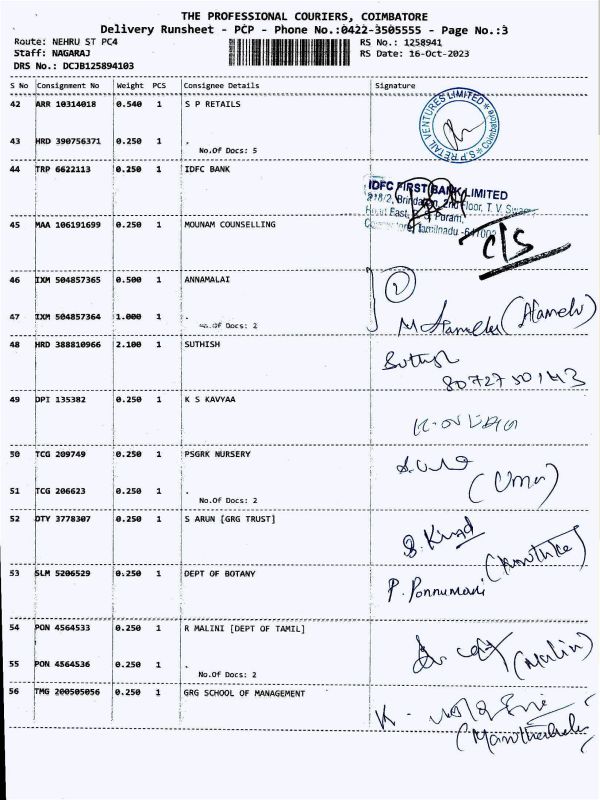 THE PROFESSIONAL COURIERS, COIMBATORE
Delivery Runsheet - PCP - Phone No.:0422-3505555 - Page No.:3
Route: NEHRU ST PC4 RS No.: 1258941
Staff: NAGARAJ RS Date: 16-Oct-2023
DRS No.: DCJB125894103
S No Consignment No Weight PCS Consignee Details Signature
42 ARR 10314018 0.540 1 S P RETAILS
S.P RETAIL VENTURES LIMITED * Coimbatore *
43 HRD 390756371 0.250 1 .
No.Of Docs: 5
44 TRP 6622113 0.250 1 IDFC BANK
IDFC FIRST BANK LIMITED
218/2, 2nd Floor, T. V. Swamy
East, Puram,
Tamilnadu - 641002
45 MAA 106191699 0.250 1 MOUNAM COUNSELLING
C/S
46 IXM 504857365 0.500 1 ANNAMALAI
2
47 IXM 504857364 1.000 1 .
No.Of Docs: 2
M Alamelu (Alamelu)
48 HRD 388810966 2.100 1 SUTHISH
Suthish
8072750143
49 DPI 135382 0.250 1 K S KAVYAA
50 TCG 209749 0.250 1 PSGRK NURSERY
(Uma)
51 TCG 206623 0.250 1 .
No.Of Docs: 2
52 DTY 3778307 0.250 1 S ARUN [GRG TRUST]
53 SLM 5206529 0.250 1 DEPT OF BOTANY
P. Ponnumani
54 PON 4564533 0.250 1 R MALINI [DEPT OF TAMIL]
(Malini)
55 PON 4564536 0.250 1 .
No.Of Docs: 2
56 TMG 200505056 0.250 1 GRG SCHOOL OF MANAGEMENT
K.